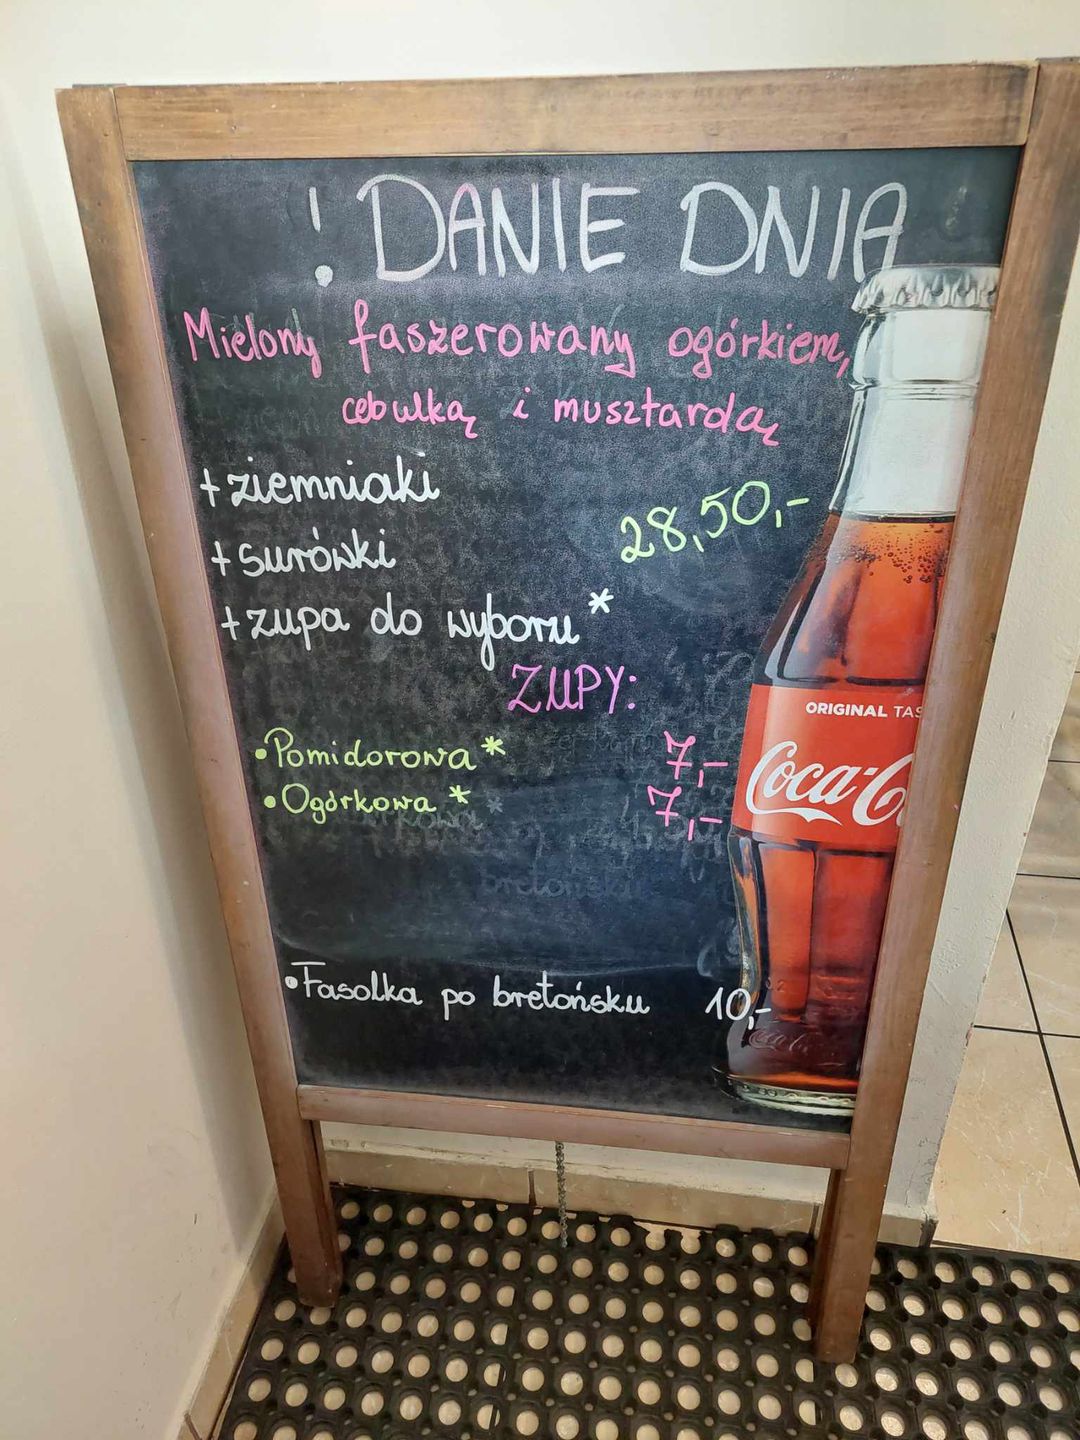 ! DANIE DNIA
Mielony faszerowany ogórkiem,
cebulką i musztardą
+ ziemniaki
28,50,-
+ surówki
+ zupa do wyboru *
ZUPY:
• Pomidorowa * 7,-
• Ogórkowa * 7,-
• Fasolka po bretońsku 10,-
ORIGINAL TAS
Coca-C